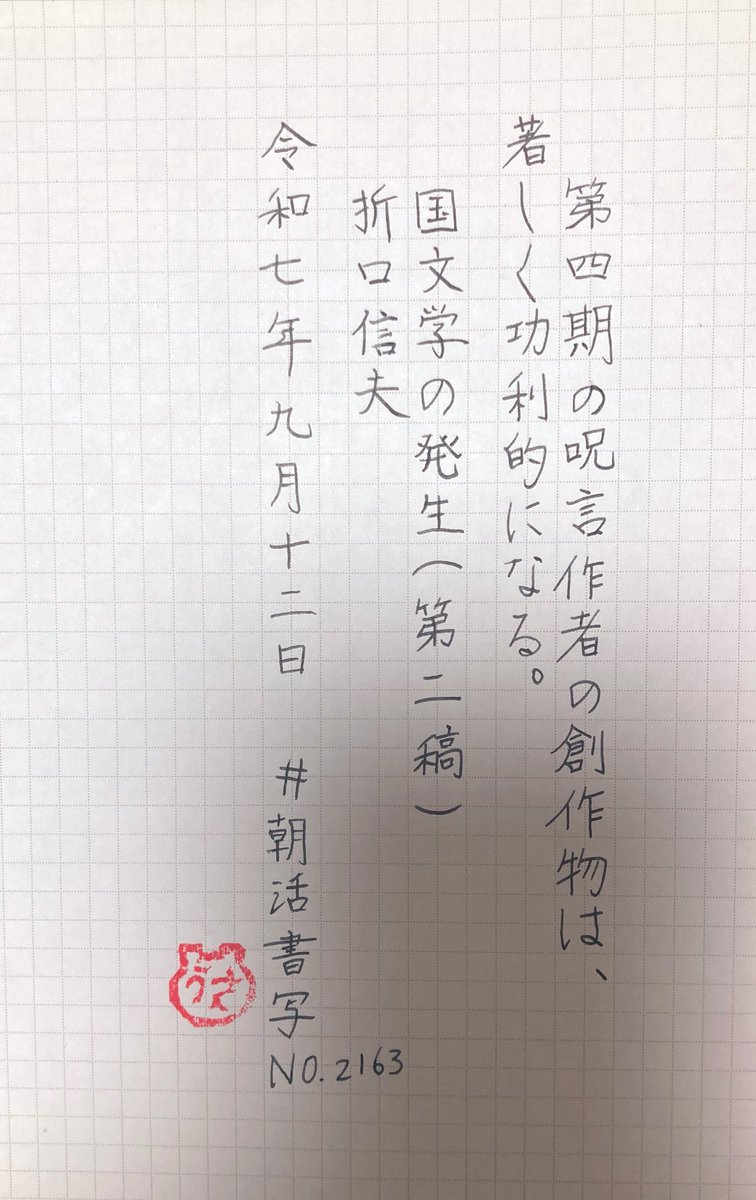 第四期の呪言作者の創作物は、
著しく功利的になる。
国文学の発生(第二稿)
折口信夫
令和七年九月十二日 #朝活書写
NO.2163